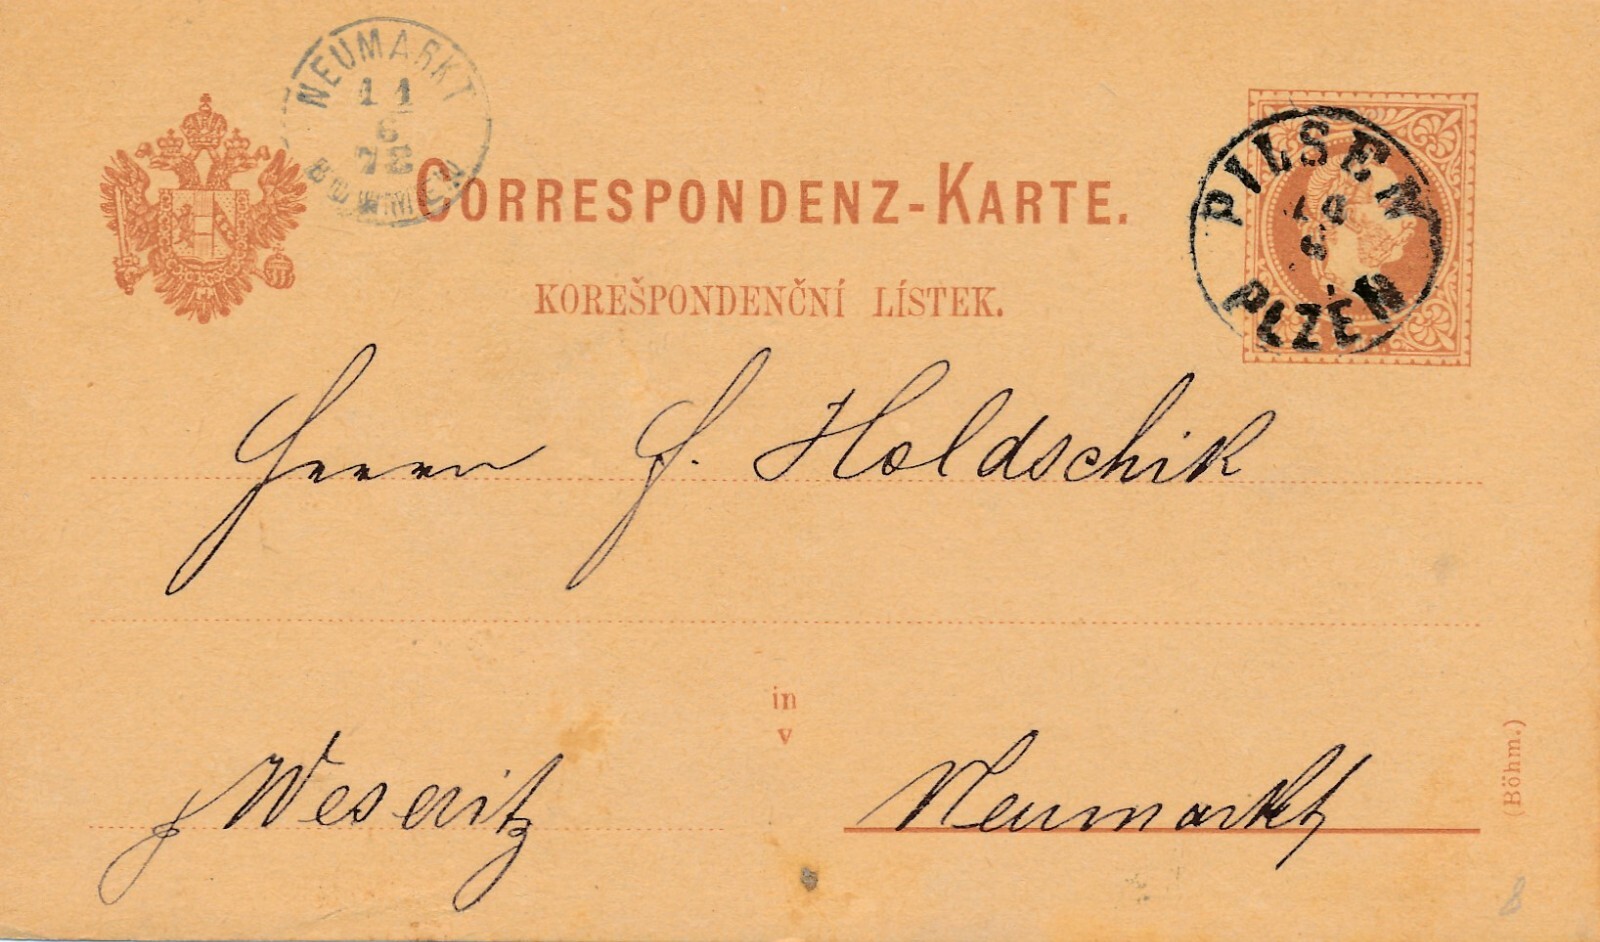 NEUMARKT
11
6
78
BÖHMEN
CORRESPONDENZ-KARTE.
KOREŠPONDENČNÍ LÍSTEK.
PILSEN
10
6
PLZEŇ
Herrn J. Holdschik
in
v
Weseritz
Neumarkt
(Böhm.)
8